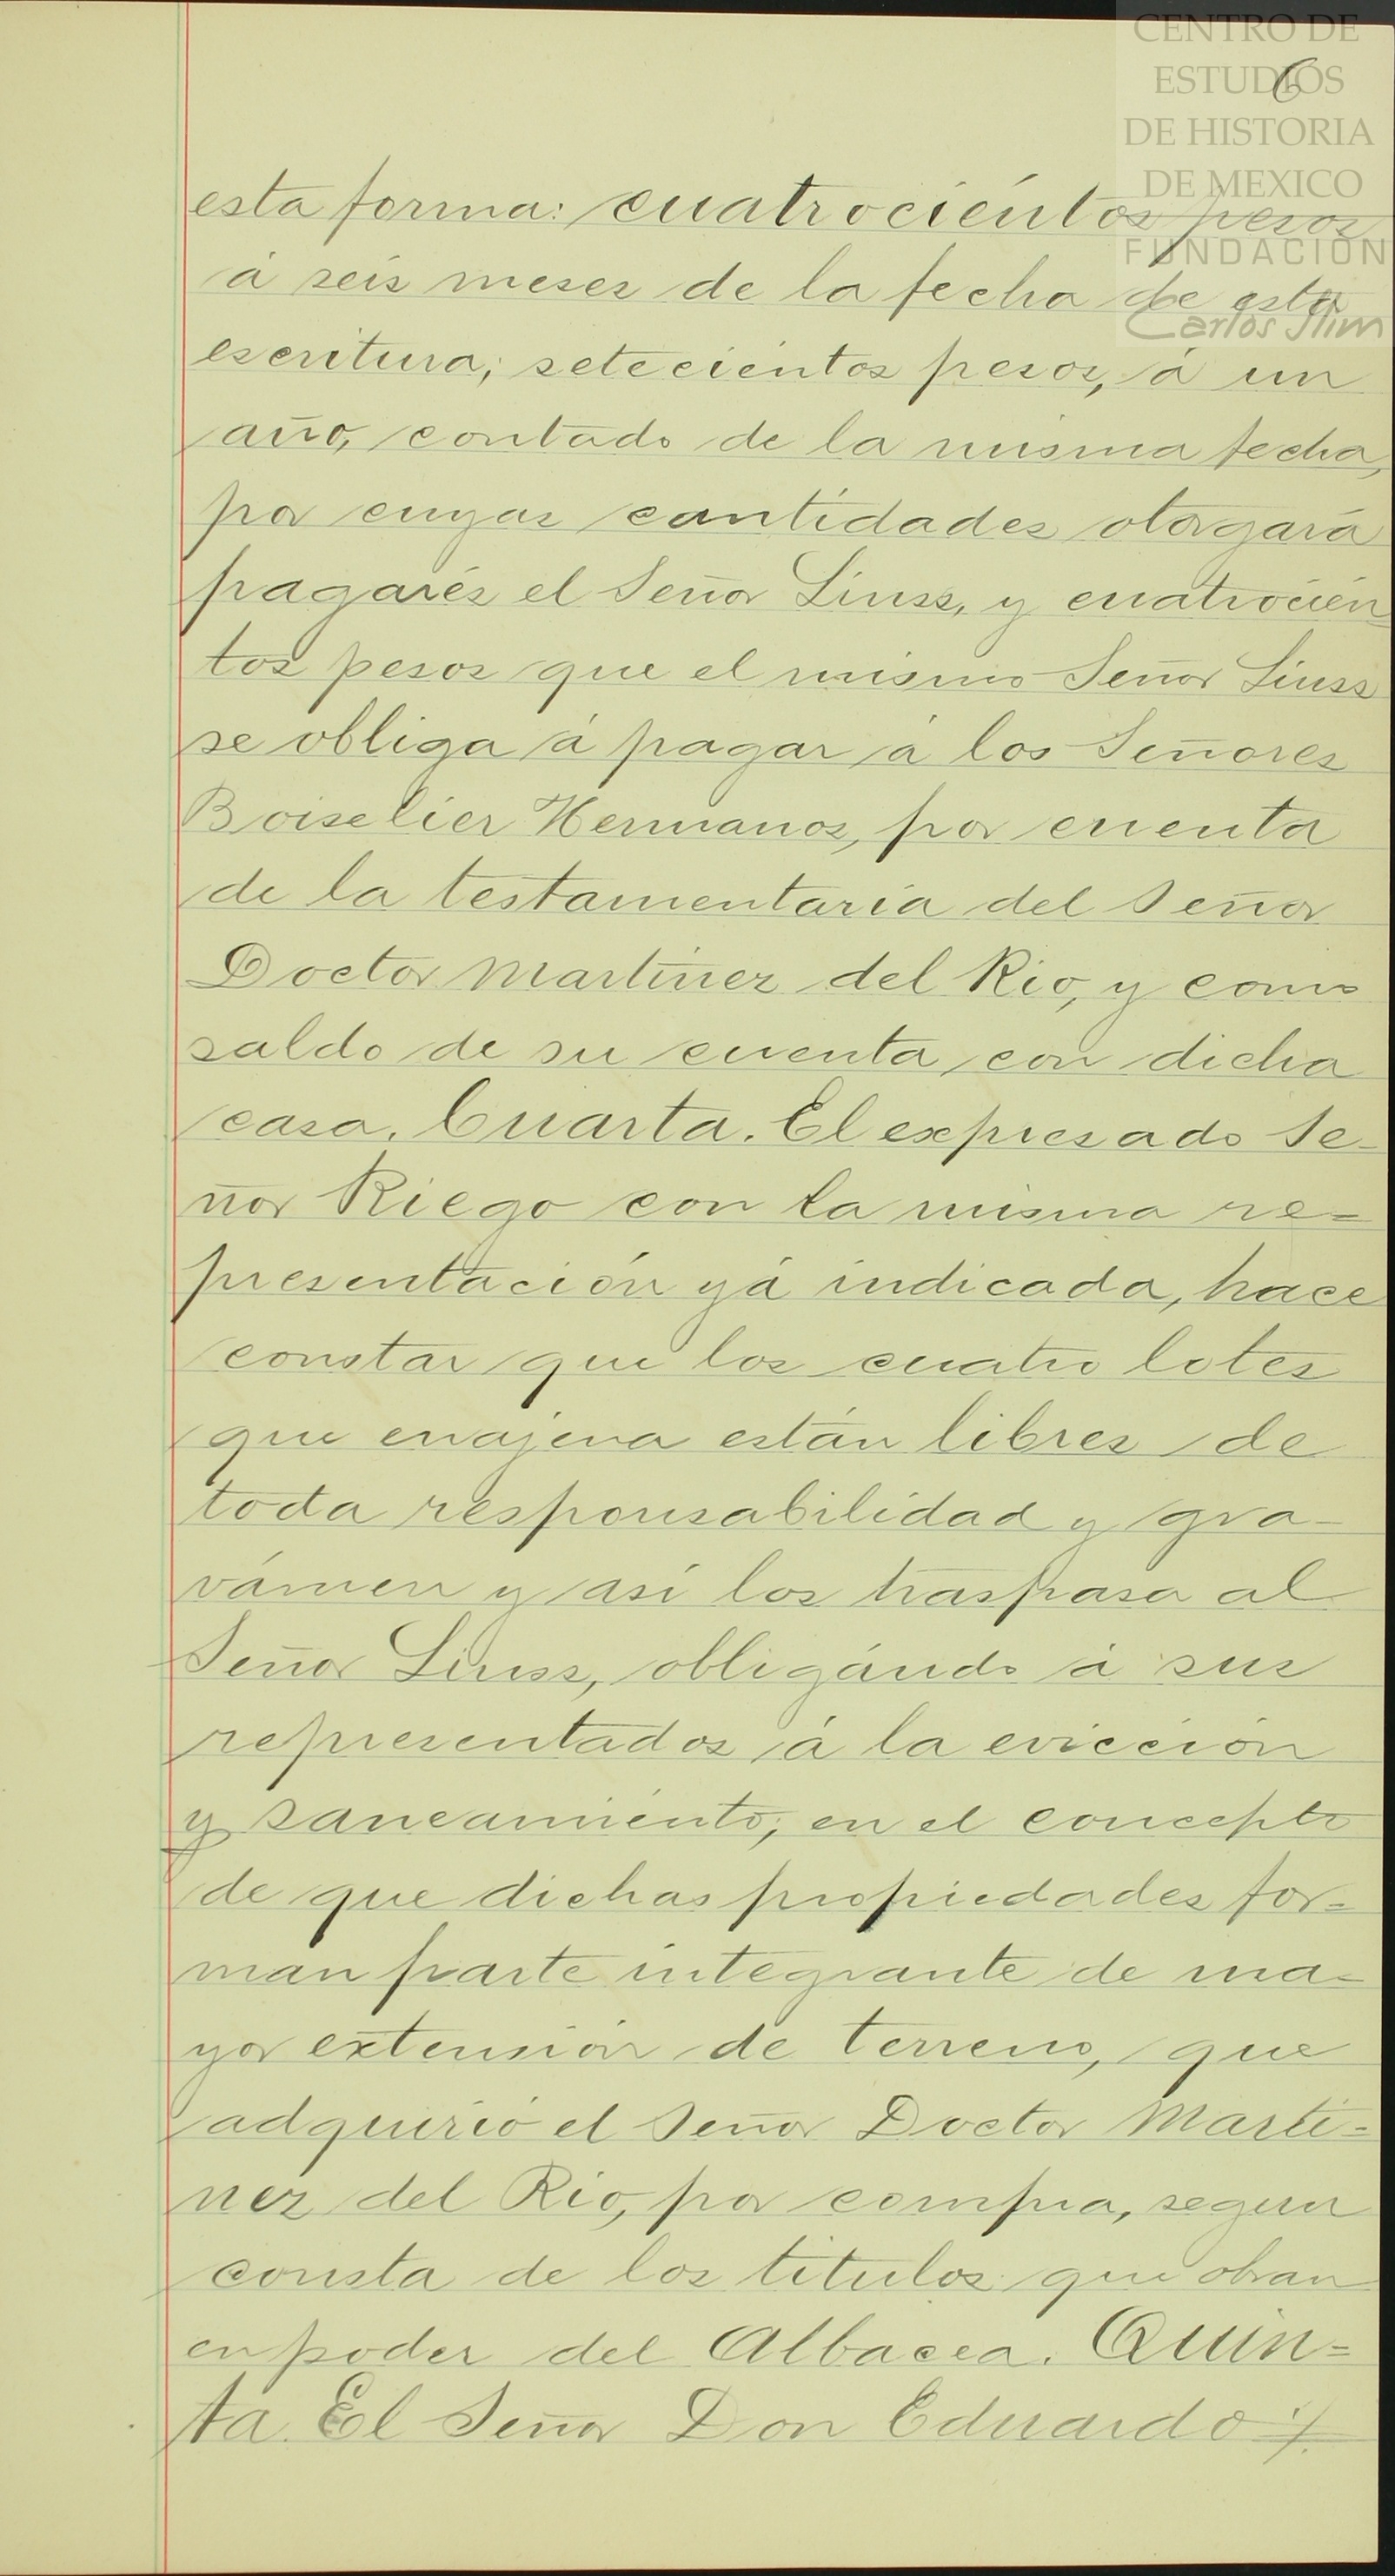 CENTRO DE
ESTUDIOS
DE HISTORIA
DE MEXICO
FUNDACIÓN
Carlos Slim
6
esta forma: cuatrociéntos pesos
á seis meses de la fecha de esta
escritura; setecientos pesos, á un
año, contado de la misma fecha,
por cuyas cantidades otorgará
pagarés el Señor Liuss, y cuatrocien
tos pesos que el mismo Señor Liuss
se obliga á pagar á los Señores
Boiselier Hermanos, por cuenta
de la testamentaría del Señor
Doctor Martinez del Rio, y como
saldo de su cuenta con dicha
casa. Cuarta. El expresado Se-
ñor Riego con la misma re=
presentación yá indicada, hace
constar que los cuatro lotes
que enajena están libres de
toda responsabilidad y gra-
vámen y así los traspasa al
Señor Liuss, obligándo á sus
representados á la evicción
y saneamiento; en el concepto
de que dichas propiedades for=
man parte integrante de ma-
yor extensión de terreno, que
adquirió el Señor Doctor Marti=
nez del Rio, por compra, segun
consta de los titulos que obran
en poder del Albacea. Quin=
ta. El Señor Don Eduardo